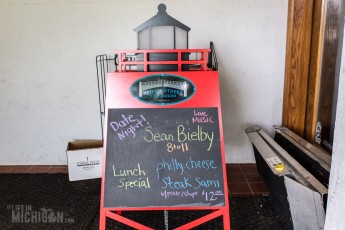 Date
Night!
Live
Music
Sean Bielby
8 to 11
Lunch
Special
philly cheese
Steak Sami
$12.00
LIFE IN
MICHIGAN.COM